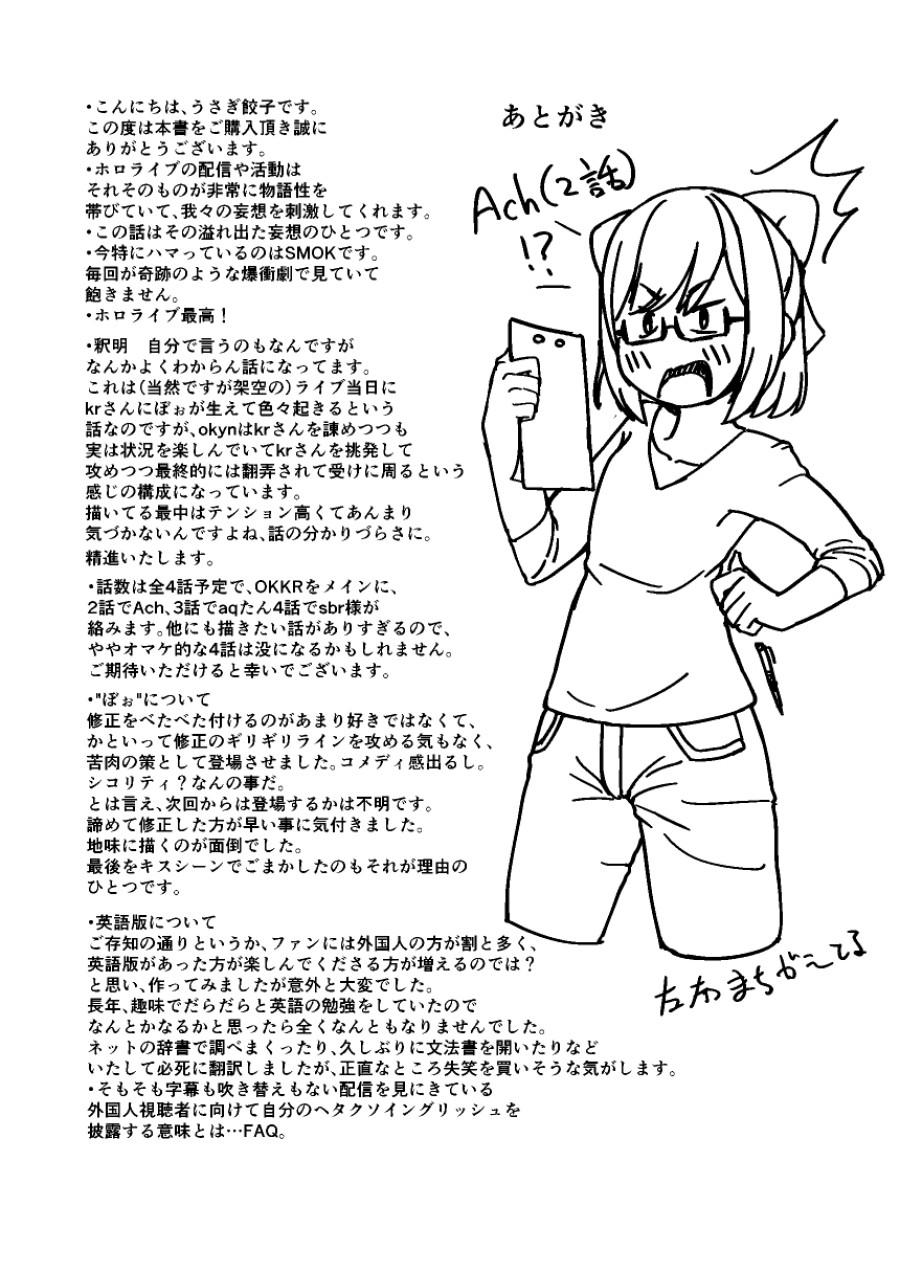 あとがき
・こんにちは、うさぎ餃子です。
この度は本書をご購入頂き誠に
ありがとうございます。
・ホロライブの配信や活動は
それそのものが非常に物語性を
帯びていて、我々の妄想を刺激してくれます。
・この話はその溢れ出た妄想のひとつです。
・今特にハマっているのはSMOKです。
毎回が奇跡のような爆衝劇で見ていて
飽きません。
・ホロライブ最高！
・釈明　自分で言うのもなんですが
なんかよくわからん話になってます。
これは（当然ですが架空の）ライブ当日に
krさんにぽぉが生えて色々起きるという
話なのですが、okynはkrさんを諌めつつも
実は状況を楽しんでいてkrさんを挑発して
攻めつつ最終的には翻弄されて受けに周るという
感じの構成になっています。
描いてる最中はテンション高くてあんまり
気づかないんですよね、話の分かりづらさに。
精進いたします。
・話数は全4話予定で、OKKRをメインに、
2話でAch、3話でaqたん4話でsbr様が
絡みます。他にも描きたい話がありすぎるので、
ややオマケ的な4話は没になるかもしれません。
ご期待いただけると幸いでございます。
・"ぽぉ"について
修正をべたべた付けるのがあまり好きではなくて、
かといって修正のギリギリラインを攻める気もなく、
苦肉の策として登場させました。コメディ感出るし。
シコリティ？なんの事だ。
とは言え、次回からは登場するかは不明です。
諦めて修正した方が早い事に気付きました。
地味に描くのが面倒でした。
最後をキスシーンでごまかしたのもそれが理由の
ひとつです。
・英語版について
ご存知の通りというか、ファンには外国人の方が割と多く、
英語版があった方が楽しんでくださる方が増えるのでは？
と思い、作ってみましたが意外と大変でした。
長年、趣味でだらだらと英語の勉強をしていたので
なんとかなるかと思ったら全くなんともなりませんでした。
ネットの辞書で調べまくったり、久しぶりに文法書を開いたりなど
いたして必死に翻訳しましたが、正直なところ失笑を買いそうな気がします。
・そもそも字幕も吹き替えもない配信を見にきている
外国人視聴者に向けて自分のヘタクソイングリッシュを
披露する意味とは…FAQ。
Ach(2話)
!?
左右まちがえてる